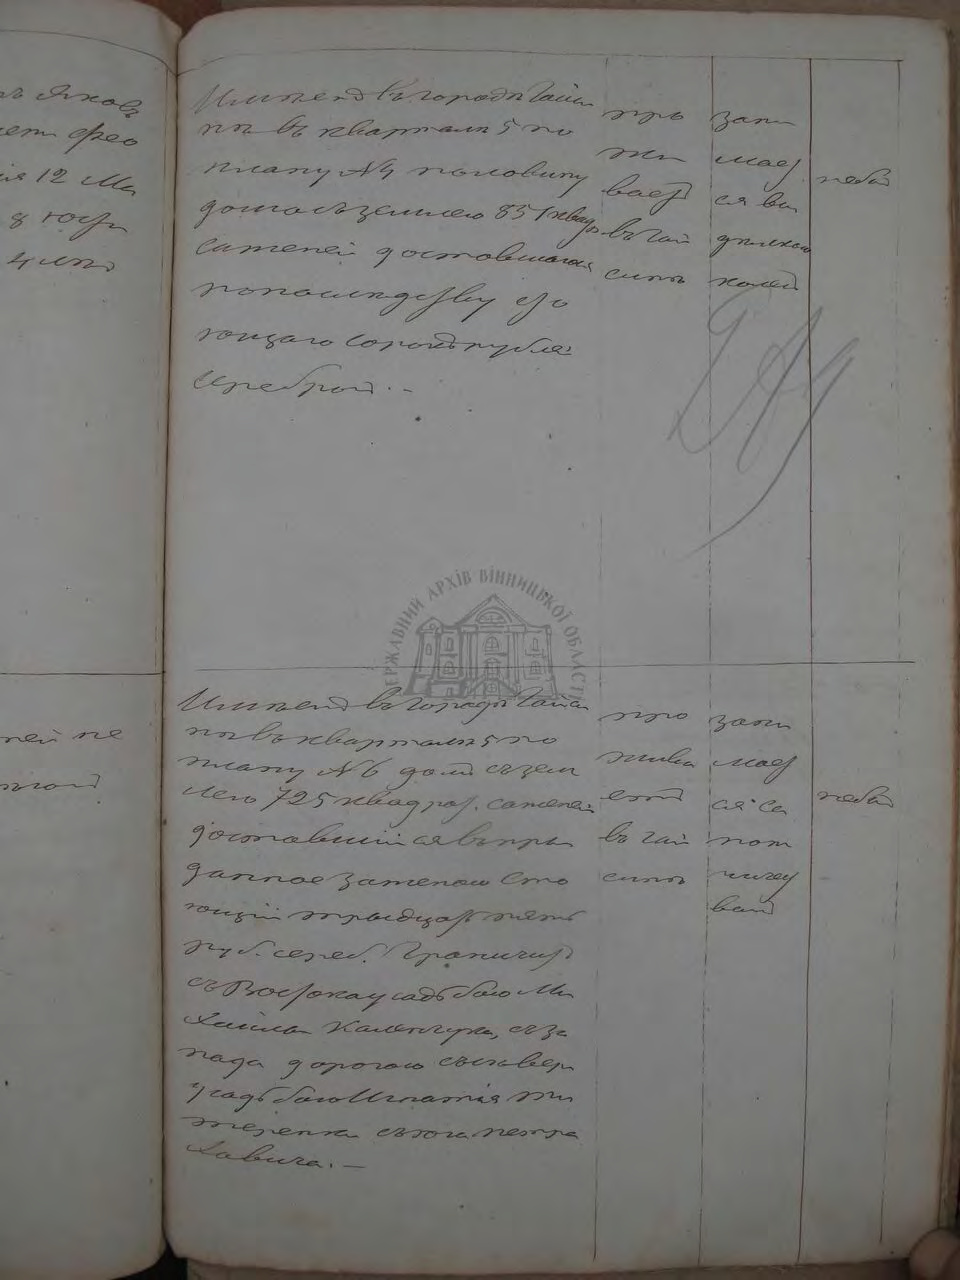 Яковъ
Фео
12 Ма
8
4
Имѣетъ въ городѣ Гайси
нѣ въ кварталѣ 5 по
плану №4 половину
дома съ землею 851 квад.
саженей доставшагося
по наслѣдству сто
ющаго сорокъ рублей
серебромъ. —
про
жи
ваетъ
въ Гай
синѣ
зани
мает
ся ви
дѣлкою
кожъ
небы
ДЕРЖАВНИЙ АРХІВ ВІННИЦЬКОЇ ОБЛАСТІ
ней не
Имѣетъ въ городѣ Гайси
нѣ въ кварталѣ 5 по
плану №6 домъ съ зем
лею 725 квадрат. саженей
доставшійся въ при
данное за женою сто
ющій тридцать пять
руб. сереб. Граничитъ
съ Востока усадьбою Ми
хайла Каленчука, съ за
пада дорогою съ сѣвер
усадьбою Игнатія
съ юга Петра
про
жива
етъ
въ Гай
синѣ
зани
мает
ся са
пож
ничес
вомъ
небы